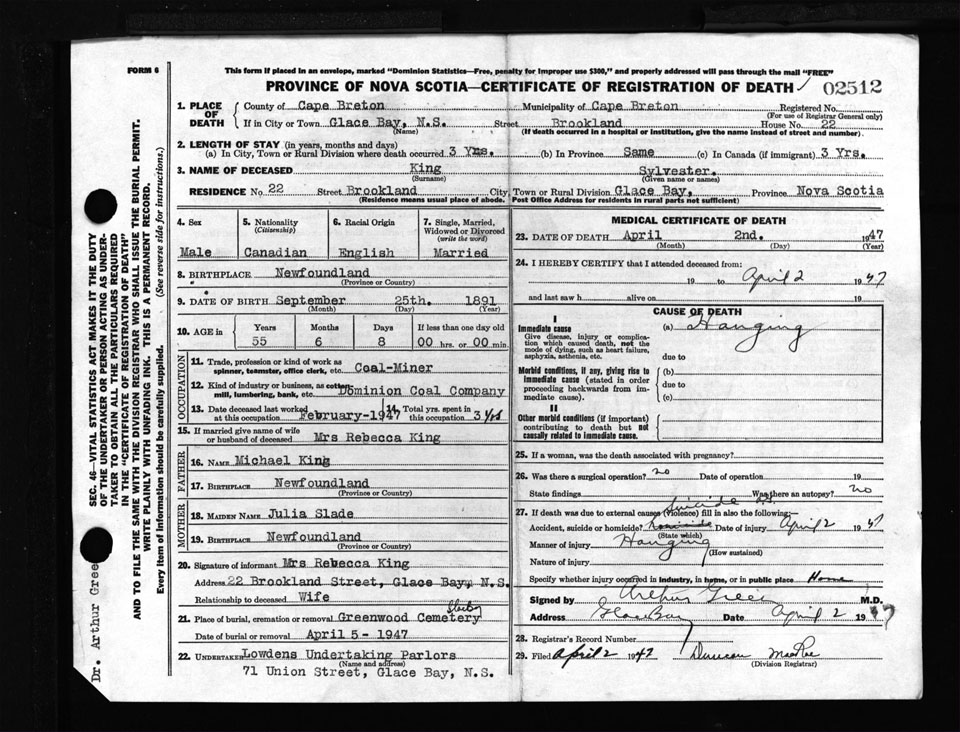 FORM 6
This form if placed in an envelope, marked "Dominion Statistics—Free, penalty for improper use $300," and properly addressed will pass through the mail "FREE"
PROVINCE OF NOVA SCOTIA—CERTIFICATE OF REGISTRATION OF DEATH 02512
1. PLACE OF DEATH County of Cape Breton Municipality of Cape Breton Registered No.
(For use of Registrar General only)
If in City or Town Glace Bay, N.S. Street Brookland House No. 22
(Name) (If death occurred in a hospital or institution, give the name instead of street and number).
2. LENGTH OF STAY (in years, months and days)
(a) In City, Town or Rural Division where death occurred 3 Yrs. (b) In Province Same (c) In Canada (if immigrant) 3 Yrs.
3. NAME OF DECEASED King Sylvester.
(Surname) (Given name or names)
RESIDENCE No. 22 Street Brookland City, Town or Rural Division Glace Bay, Province Nova Scotia
(Residence means usual place of abode. Post Office Address for residents in rural parts not sufficient)
4. Sex 5. Nationality 6. Racial Origin 7. Single, Married, Widowed or Divorced
(Citizenship) (write the word)
Male Canadian English Married
8. BIRTHPLACE Newfoundland
(Province or Country)
9. DATE OF BIRTH September 25th. 1891
(Month) (Day) (Year)
10. AGE in Years Months Days If less than one day old
55 6 8 00 hrs. or 00 min.
OCCUPATION
11. Trade, profession or kind of work as
spinner, teamster, office clerk, etc. Coal-Miner
12. Kind of industry or business, as cotton
mill, lumbering, bank, etc. Dominion Coal Company
13. Date deceased last worked at this occupation February-1947 14. Total yrs. spent in this occupation 3 yrs
15. If married give name of wife
or husband of deceased Mrs Rebecca King
FATHER
16. NAME Michael King
17. BIRTHPLACE Newfoundland
(Province or Country)
MOTHER
18. MAIDEN NAME Julia Slade
19. BIRTHPLACE Newfoundland
(Province or Country)
20. Signature of informant Mrs Rebecca King
Address 22 Brookland Street, Glace Bay, N.S.
Relationship to deceased Wife
21. Place of burial, cremation or removal Greenwood Cemetery
Date of burial or removal April 5-1947
22. UNDERTAKER Lowdens Undertaking Parlors
(Name and address)
71 Union Street, Glace Bay, N.S.
MEDICAL CERTIFICATE OF DEATH
23. DATE OF DEATH April 2nd. 1947
(Month) (Day) (Year)
24. I HEREBY CERTIFY that I attended deceased from:
19 to April 2 1947
and last saw h alive on 19
CAUSE OF DEATH
I
Immediate cause (a) Hanging
Give disease, injury or complication which caused death, not the mode of dying, such as heart failure, asphyxia, asthenia, etc.
due to
Morbid conditions, if any, giving rise to immediate cause (stated in order proceeding backwards from immediate cause).
(b)
due to
(c)
II
Other morbid conditions (if important) contributing to death but not causally related to immediate cause.
25. If a woman, was the death associated with pregnancy?
26. Was there a surgical operation? no Date of operation 19
State findings Was there an autopsy? no
27. If death was due to external causes (violence) fill in also the following:
suicide
Accident, suicide or homicide? homicide Date of injury April 2 1947
(State which)
Manner of injury Hanging
(How sustained)
Nature of injury
Specify whether injury occurred in industry, in home, or in public place Home
Signed by Arthur Green M.D.
Address Glace Bay Date April 2 1947
28. Registrar's Record Number
29. Filed April 2 1947 Duncan MacRae
(Division Registrar)
SEC. 46—VITAL STATISTICS ACT MAKES IT THE DUTY
OF THE UNDERTAKER OR PERSON ACTING AS UNDER-
TAKER TO OBTAIN ALL THE PARTICULARS REQUIRED
IN THE "CERTIFICATE OF REGISTRATION OF DEATH"
AND TO FILE THE SAME WITH THE DIVISION REGISTRAR WHO SHALL ISSUE THE BURIAL PERMIT.
WRITE PLAINLY WITH UNFADING INK. THIS IS A PERMANENT RECORD.
Every item of information should be carefully supplied. (See reverse side for instructions.)
Dr. Arthur Gree